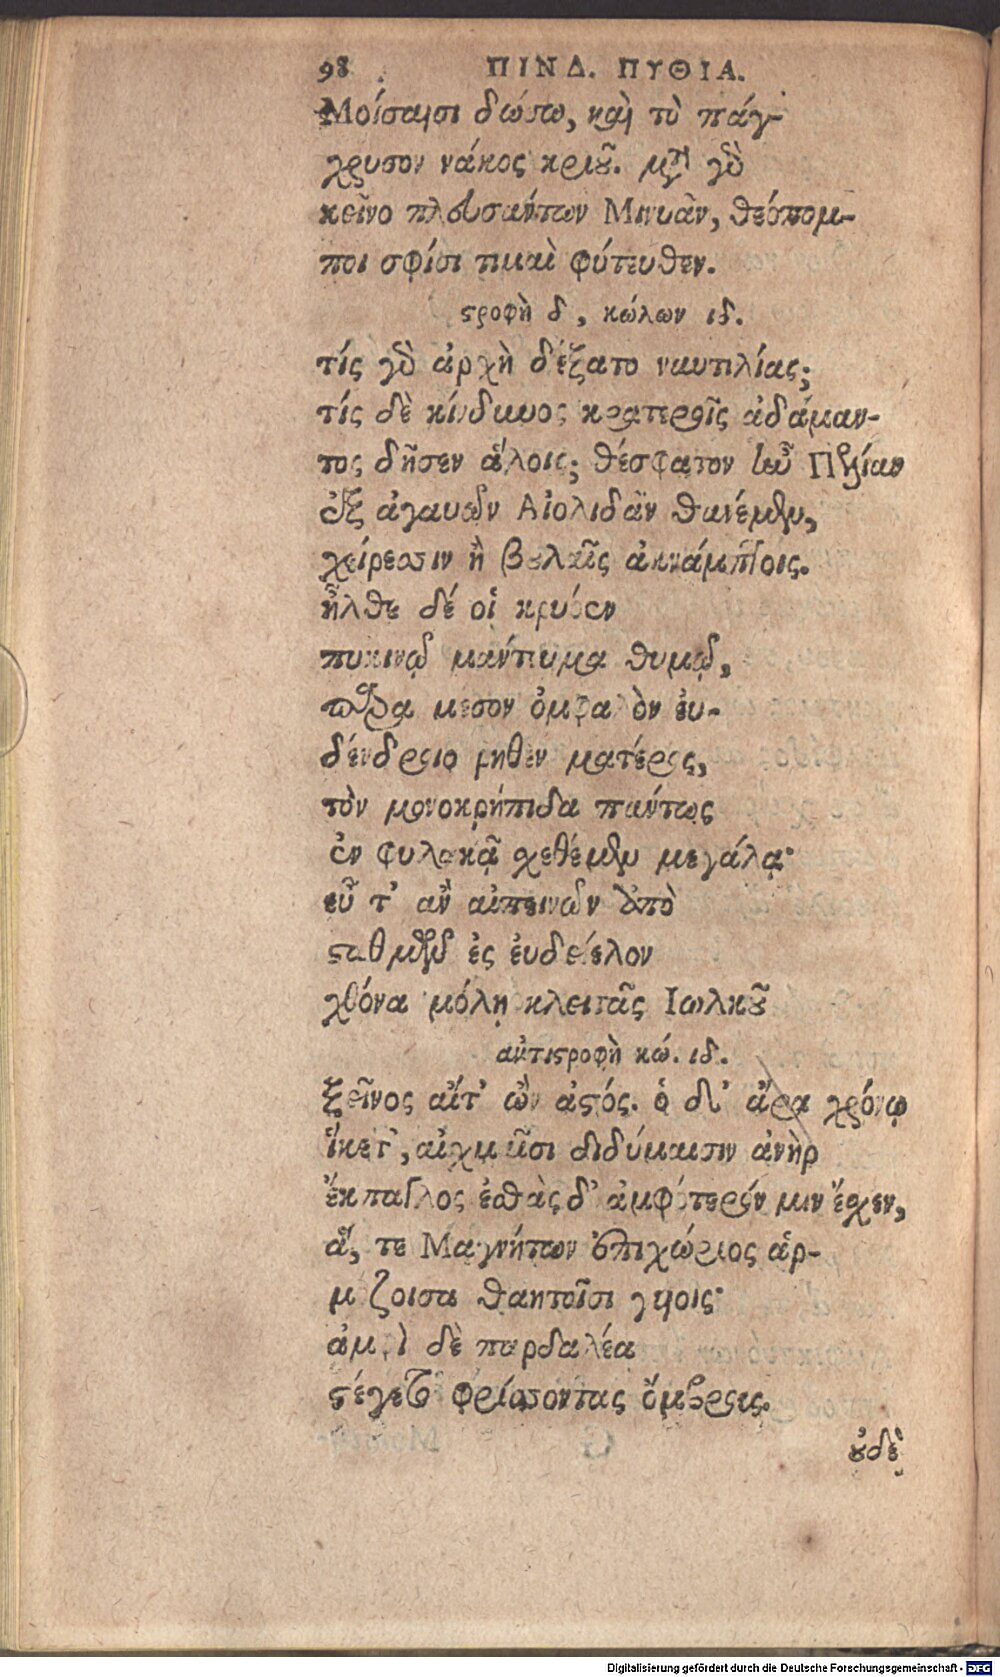 98 ΠΙΝΔ. ΠΥΘΙΑ.
Μοίσαισι δώσω, καὶ τὸ πάγ-
χρυσον νάκος κριοῦ. μετὰ γὰρ
κεῖνο πλευσάντων Μινυᾶν, θεόπομ-
ποι σφίσι τιμαὶ φύτευθεν.
στροφὴ δ, κώλων ιδ.
τίς γὰρ ἀρχὴ δέξατο ναυτιλίας;
τίς δὲ κίνδυνος κρατεροῖς ἀδάμαν-
τος δῆσεν ἅλοις; θέσφατον ἦν Πελίαν
ἐξ ἀγαυῶν Αἰολιδᾶν θανέμεν,
χείρεσσιν ἢ βουλαῖς ἀκνάμπτοις.
ἦλθε δέ οἱ κρυόεν
πυκινῷ μάντευμα θυμῷ,
παρὰ μέσον ὀμφαλὸν εὐ-
δένδροιο ῥηθὲν ματέρος,
τὸν μονοκρήπιδα πάντως
ἐν φυλακᾷ χεθέμεν μεγάλᾳ·
εὖ τ' ἂν αἰπεινῶν ἀπὸ
σταθμῶν ἐς εὐδείελον
χθόνα μόλῃ κλειτᾶς Ἰωλκοῦ
ἀντιστροφὴ κώ. ιδ.
ξεῖνος αἴτ' ὢν ἀστός. ὁ δ' ἄρα χρόνῳ
ἵκετ', αἰχμαῖσι διδύμαισιν ἀνὴρ
ἔκπαγλος ἐσθὰς δ' ἀμφότερόν μιν ἔχεν,
ἅ, τε Μαγνήτων ἐπιχώριος ἁρ-
μόζοισα θαητοῖσι γυίοις·
ἀμφὶ δὲ παρδαλέα
στέγετο φρίσσοντας ὄμβρους.
οὐδὲ
Digitalisierung gefördert durch die Deutsche Forschungsgemeinschaft - DFG